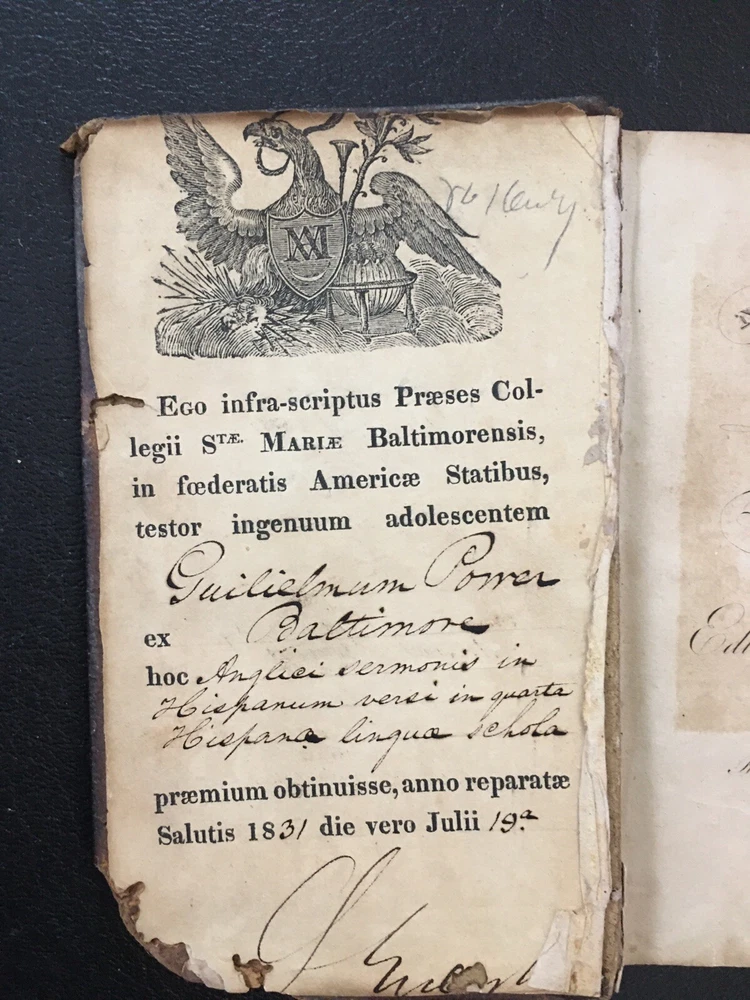 Henry
Ego infra-scriptus Præses Col-
legii Stæ. Mariæ Baltimorensis,
in fœderatis Americæ Statibus,
testor ingenuum adolescentem
Guilielmum Power
ex Baltimore
hoc Anglici sermonis in
Hispanum versi in quarta
Hispanæ linguæ schola
præmium obtinuisse, anno reparatæ
Salutis 1831 die vero Julii 19.a